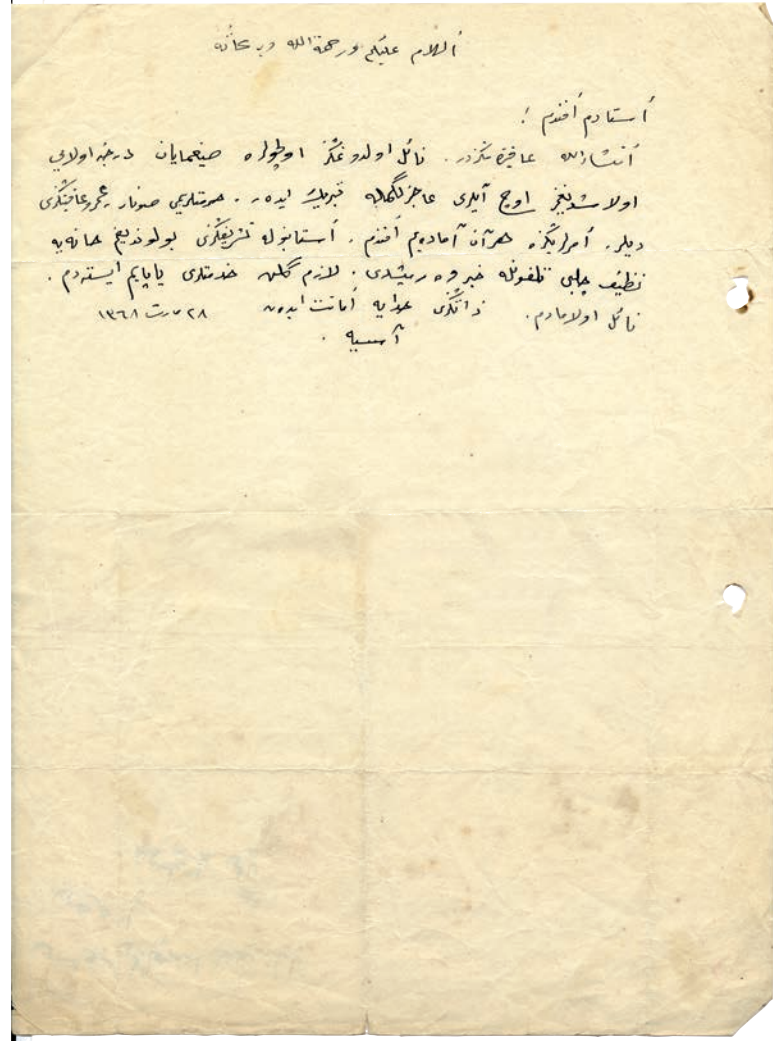 السلام عليكم ورحمة الله وبركاته
أستادم أفندم !
أنشاءالله عافيتده سكزدر . نائل اولدوغكز اوطولره صيغمايان درجه اولايى
اولاشديغكز اوچ آيلرى عاجزلگمله تبريك ايدەر . حرمتلريمى صونار ، عمر وعافيتكزى
ديلر . أمرلريكزه هرآن آمادەيم أفندم . أستانبوله تشريفكزى بولونديغم خانه‌يه
نظيف چلبى تلفونله خبر وەرمشدى . لازم گلن خدمتلرى ياپايم ايستەدم .
نائل اولامادم . ذاتگزى خدايه أمانت ايدەن ٢٨ مارت ١٣٦٨
آسيه .